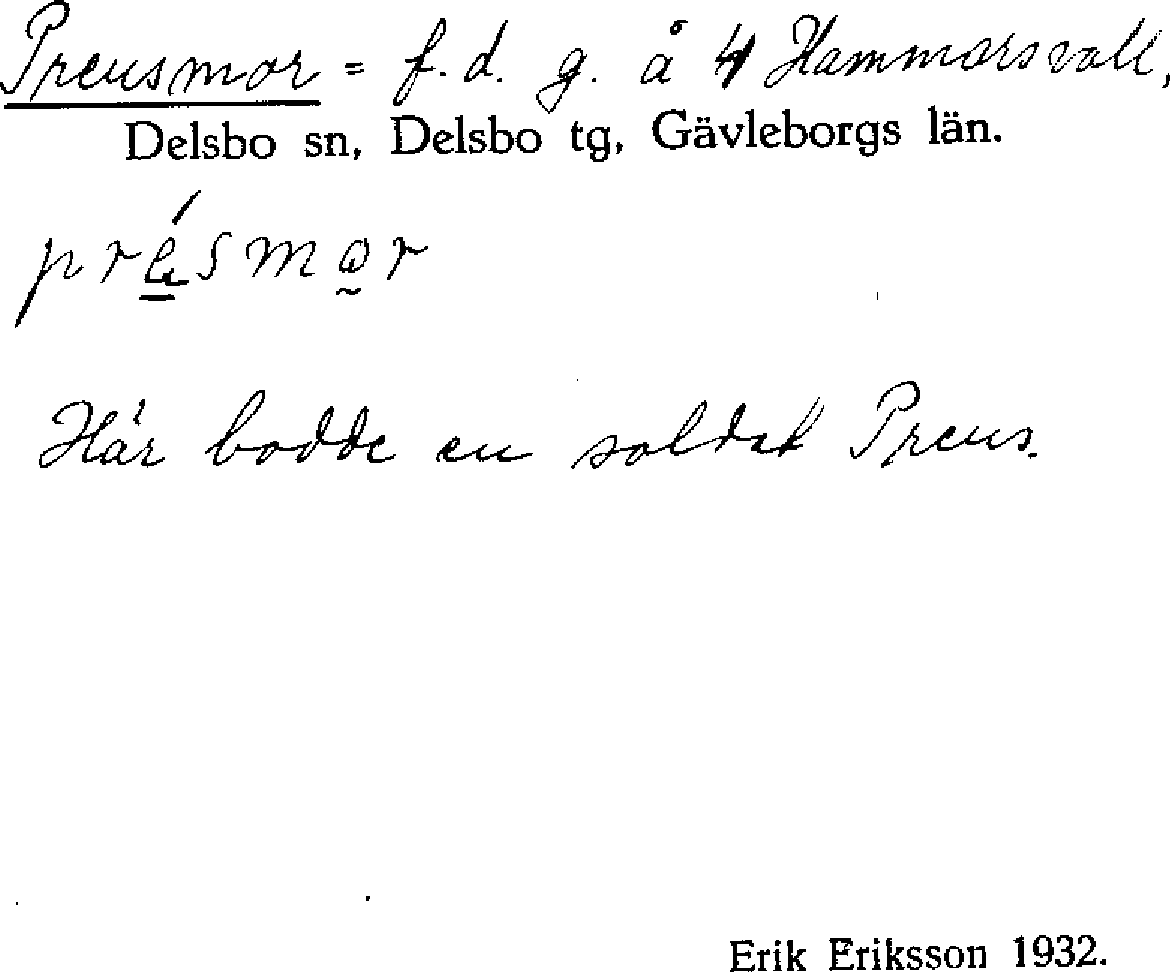 Preusmor = f. d. g. å 4 Hammarsvall,
Delsbo sn, Delsbo tg, Gävleborgs län.
Här bodde en soldat Preus.
Erik Eriksson 1932.